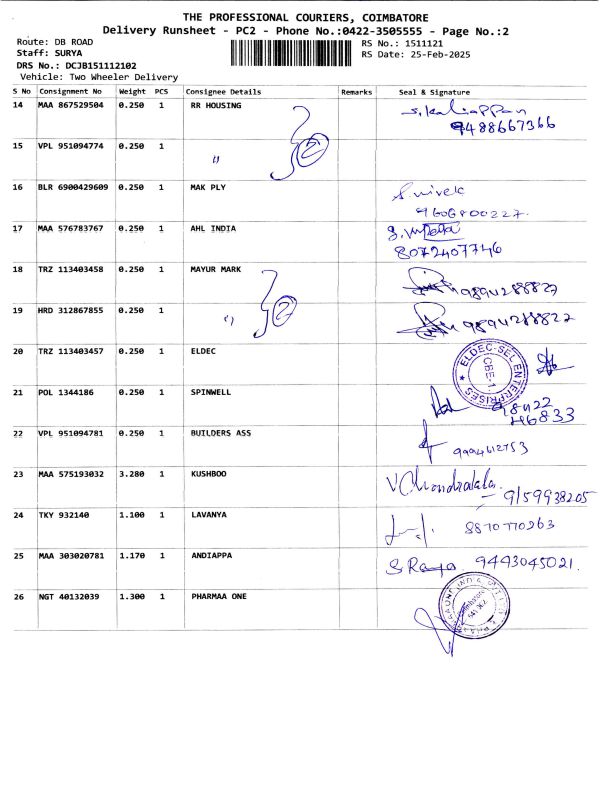 THE PROFESSIONAL COURIERS, COIMBATORE
Delivery Runsheet - PC2 - Phone No.:0422-3505555 - Page No.:2
Route: DB ROAD RS No.: 1511121
Staff: SURYA RS Date: 25-Feb-2025
DRS No.: DCJB151112102
Vehicle: Two Wheeler Delivery
S No Consignment No Weight PCS Consignee Details Remarks Seal & Signature
14 MAA 867529504 0.250 1 RR HOUSING S.Kaliappan
9488667366
15 VPL 951094774 0.250 1 " 2
16 BLR 6900429609 0.250 1 MAK PLY
9606800227.
17 MAA 576783767 0.250 1 AHL INDIA
8072407746
18 TRZ 113403458 0.250 1 MAYUR MARK 9894288827
19 HRD 312867855 0.250 1 " 2 9894288822
20 TRZ 113403457 0.250 1 ELDEC
ELDEC-SEL ENTERPRISES
CBE-1
21 POL 1344186 0.250 1 SPINWELL
98422
46833
22 VPL 951094781 0.250 1 BUILDERS ASS
9994612753
23 MAA 575193032 3.280 1 KUSHBOO V Chandralala.
9159938205
24 TKY 932140 1.100 1 LAVANYA 8870770263
25 MAA 303020781 1.170 1 ANDIAPPA S. Raja. 9493045021.
26 NGT 40132039 1.300 1 PHARMAA ONE